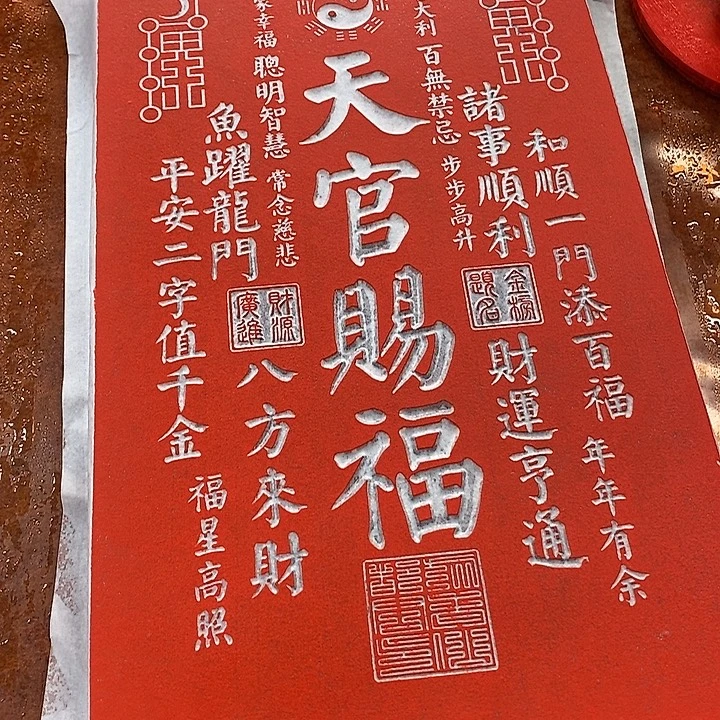 和順一門添百福 年年有余
諸事順利 金榜題名 財運亨通
大利 百無禁忌 步步高升
天官賜福
幸福 聰明智慧 常念慈悲
魚躍龍門 財源廣進 八方來財
平安二字值千金 福星高照